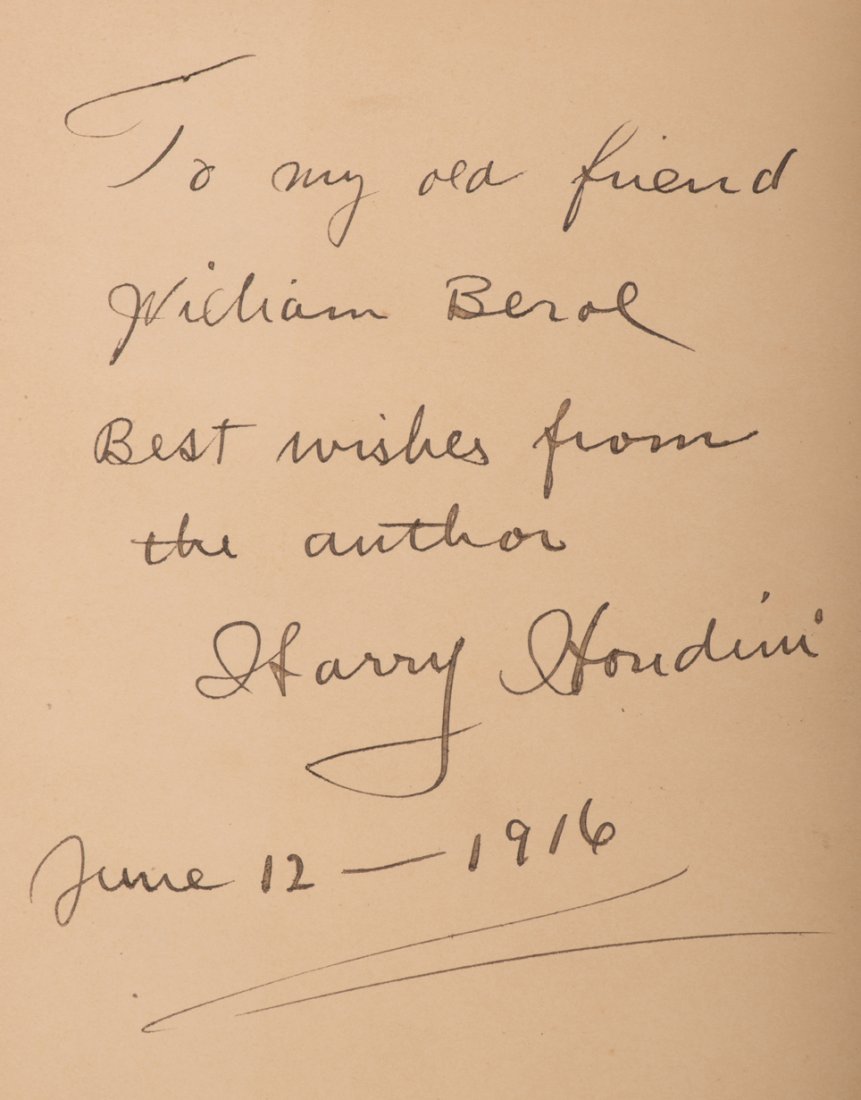 To my old friend
William Berol
Best wishes from
the author
Harry Houdini
June 12 — 1916